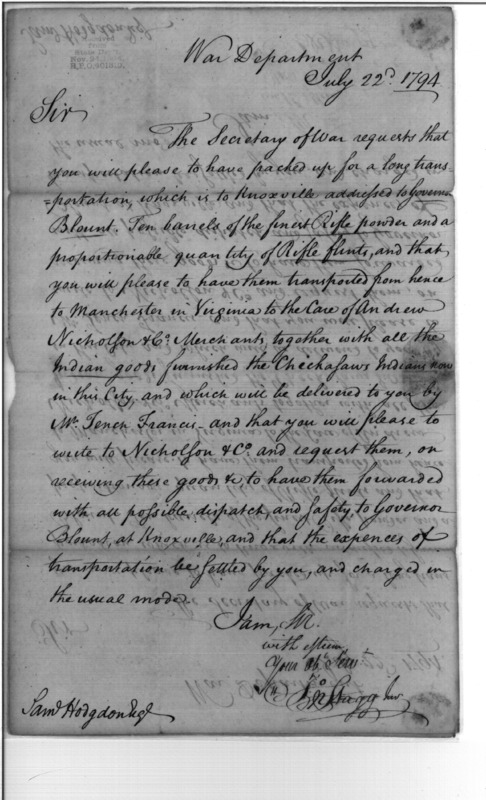 War Department
July 22d. 1794
Sir
The Secretary of War requests that
you will please to have packed up for a long trans-
=portation, which is to Knoxville addressed to Governor
Blount. Ten barrels of the finest Rifle powder and a
proportionable quantity of Rifle flints, and that
you will please to have them transported from hence
to Manchester in Virginia to the Care of Andrew
Nicholson & Co. Merchants, together with all the
Indian goods furnished the Checkasaws Indians now
in this City, and which will be delivered to you by
Mr. Tench Francis - and that you will please to
write to Nicholson & Co. and request them, on
receiving these goods & to have them forwarded
with all possible dispatch and safety to Governor
Blount, at Knoxville, and that the expences of
transportation be settled by you, and charged in
the usual mode.
I am, Sir
with esteem
Your Ob. Servt
Jno Stagg Junr
Saml Hodgdon Esqr